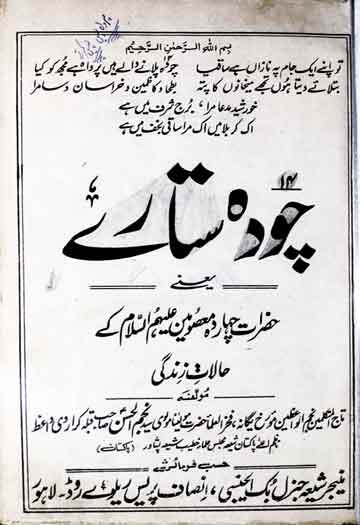 بسم اللہ الرحمٰن الرحیم
تو اپنے ایک جام پہ نازاں ہے ساقیا چودہ پلانے والے ہیں پرواہ ہے مجھ کو کیا
بتلائے دیتا ہوں تجھے میخانوں کا پتہ بطحا و کاظمین و خراسان و سامرا
خورشید مدعا مرا، برج شرف میں ہے
اک کربلا میں اک مرا ساقی نجف میں ہے
۱۴
چودہ ستارے
یعنے
حضرات چہاردہ معصومین علیہم السلام کے
حالات زندگی
مؤلفہ
تاج المتکلمین نجم الواعظین مؤرخ یگانہ، فخر العلما حضرت مولینا مولوی سید نجم الحسن صاحب قبلہ کراروی واعظ
ناظم اعلےٰ پاکستان شیعہ مجلس علماء خطیب شیعہ پشاور (پاکستان)
حسب فرمائش
منیجر شیعہ جنرل بک ایجنسی، انصاف پریس ریلوے روڈ۔ لاہور